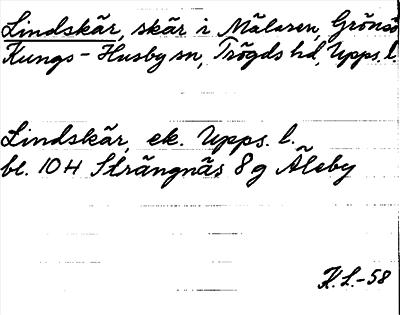 Lindskär, skär i Mälaren, Grönsö
Kungs-Husby sn, Trögds hd, Upps. l.
Lindskär, ek. Upps. l.
bl. 10 H Strängnäs 8 g Åleby
K.L.-58